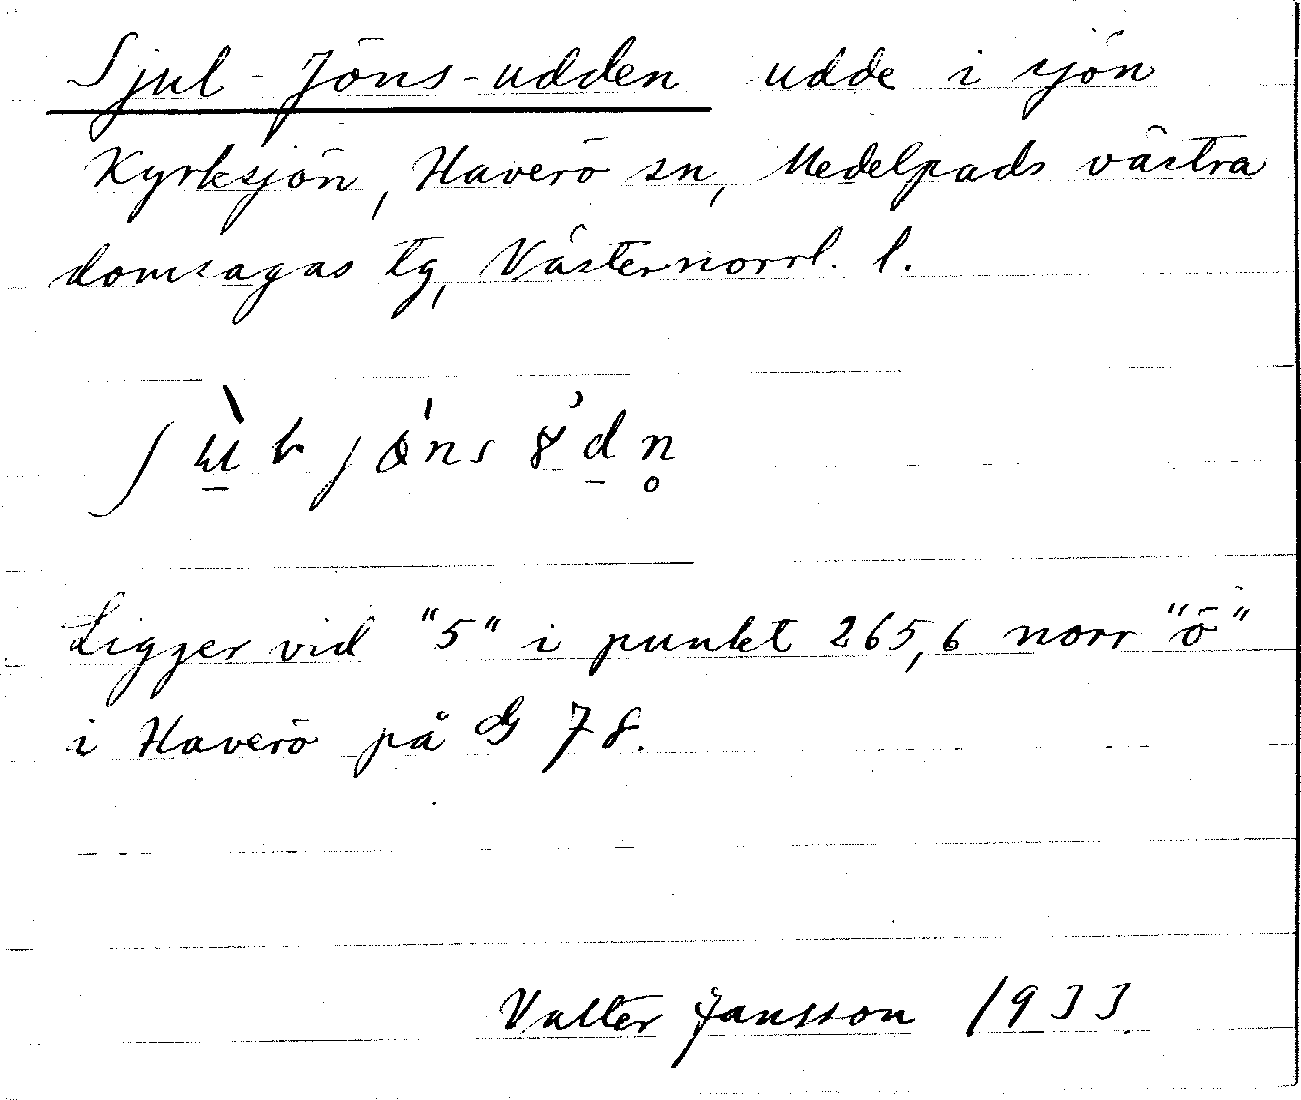 Sjul-Jöns-udden udde i sjön
Kyrksjön, Haverö sn, Medelpads västra
domsagas tg, Västernorrl. l.
Ligger vid "5" i punkt 265,6 norr "ö"
i Haverö på G 78.
Valter Jansson 1933.